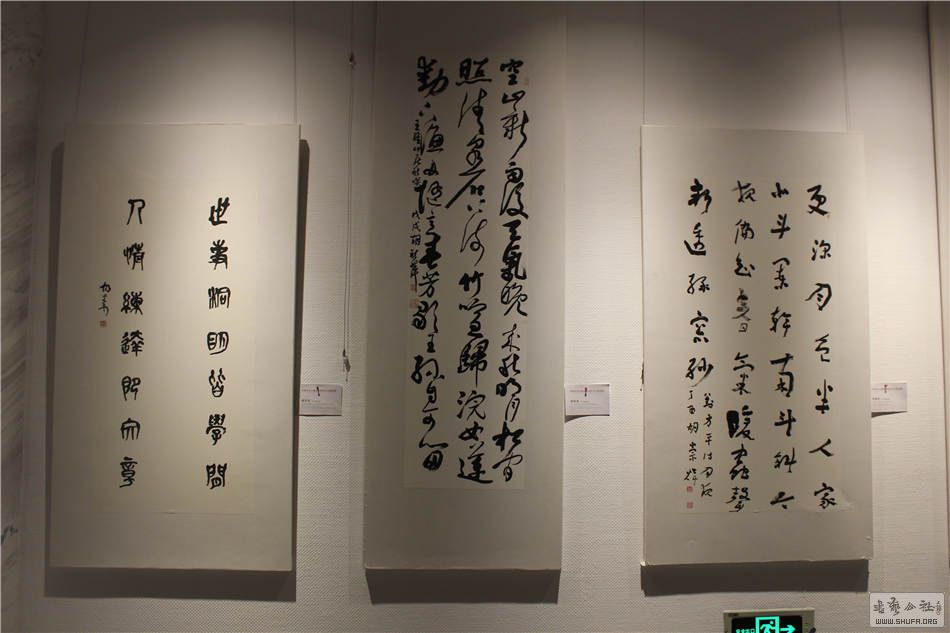 世事洞明皆學問
人情練達即文章
空山新雨後天氣晚來秋明月松間
照清泉石上流竹喧歸浣女蓮
動下漁舟隨意春芳歇王孫自可留
王維山居秋暝 戊戌
更深月色半人家
北斗闌干南斗斜今
夜偏知春氣暖蟲聲
新透綠窗紗
劉方平詩月夜
丁酉胡崇煒
書藝公社
WWW.SHUFA.ORG